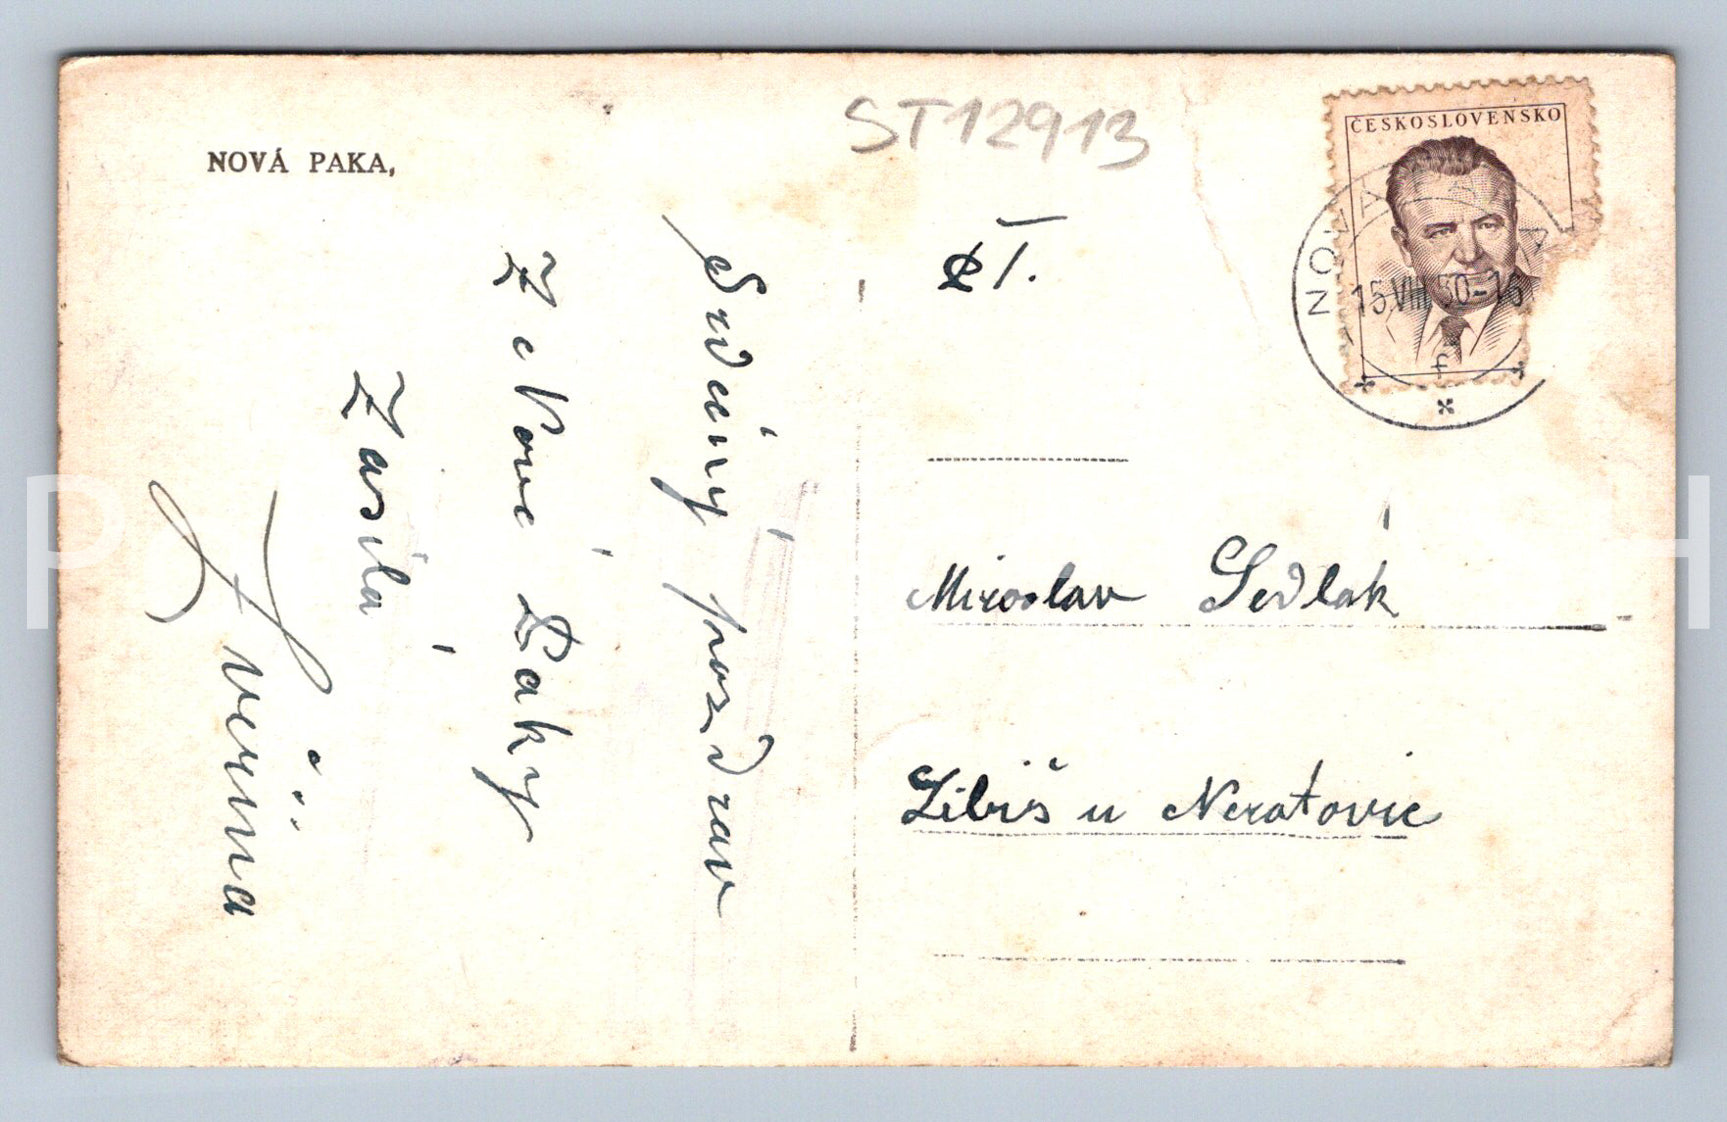 NOVÁ PAKA,
ST12913
ČESKOSLOVENSKO
NOVÁ PAKA
15.VIII.50-16
f
Srdečný pozdrav
Z Nové Paky
Zasílá
Ct.
Miroslav Sedlák
Libiš u Neratovic
P H